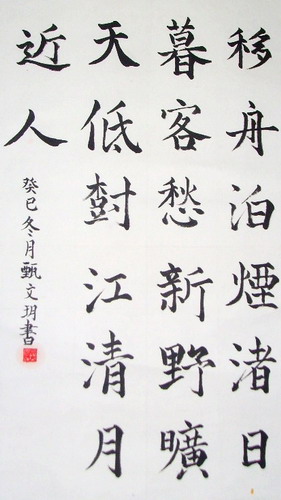 移舟泊煙渚日
暮客愁新野曠
天低樹江清月
近人
癸巳冬月甄文玥書